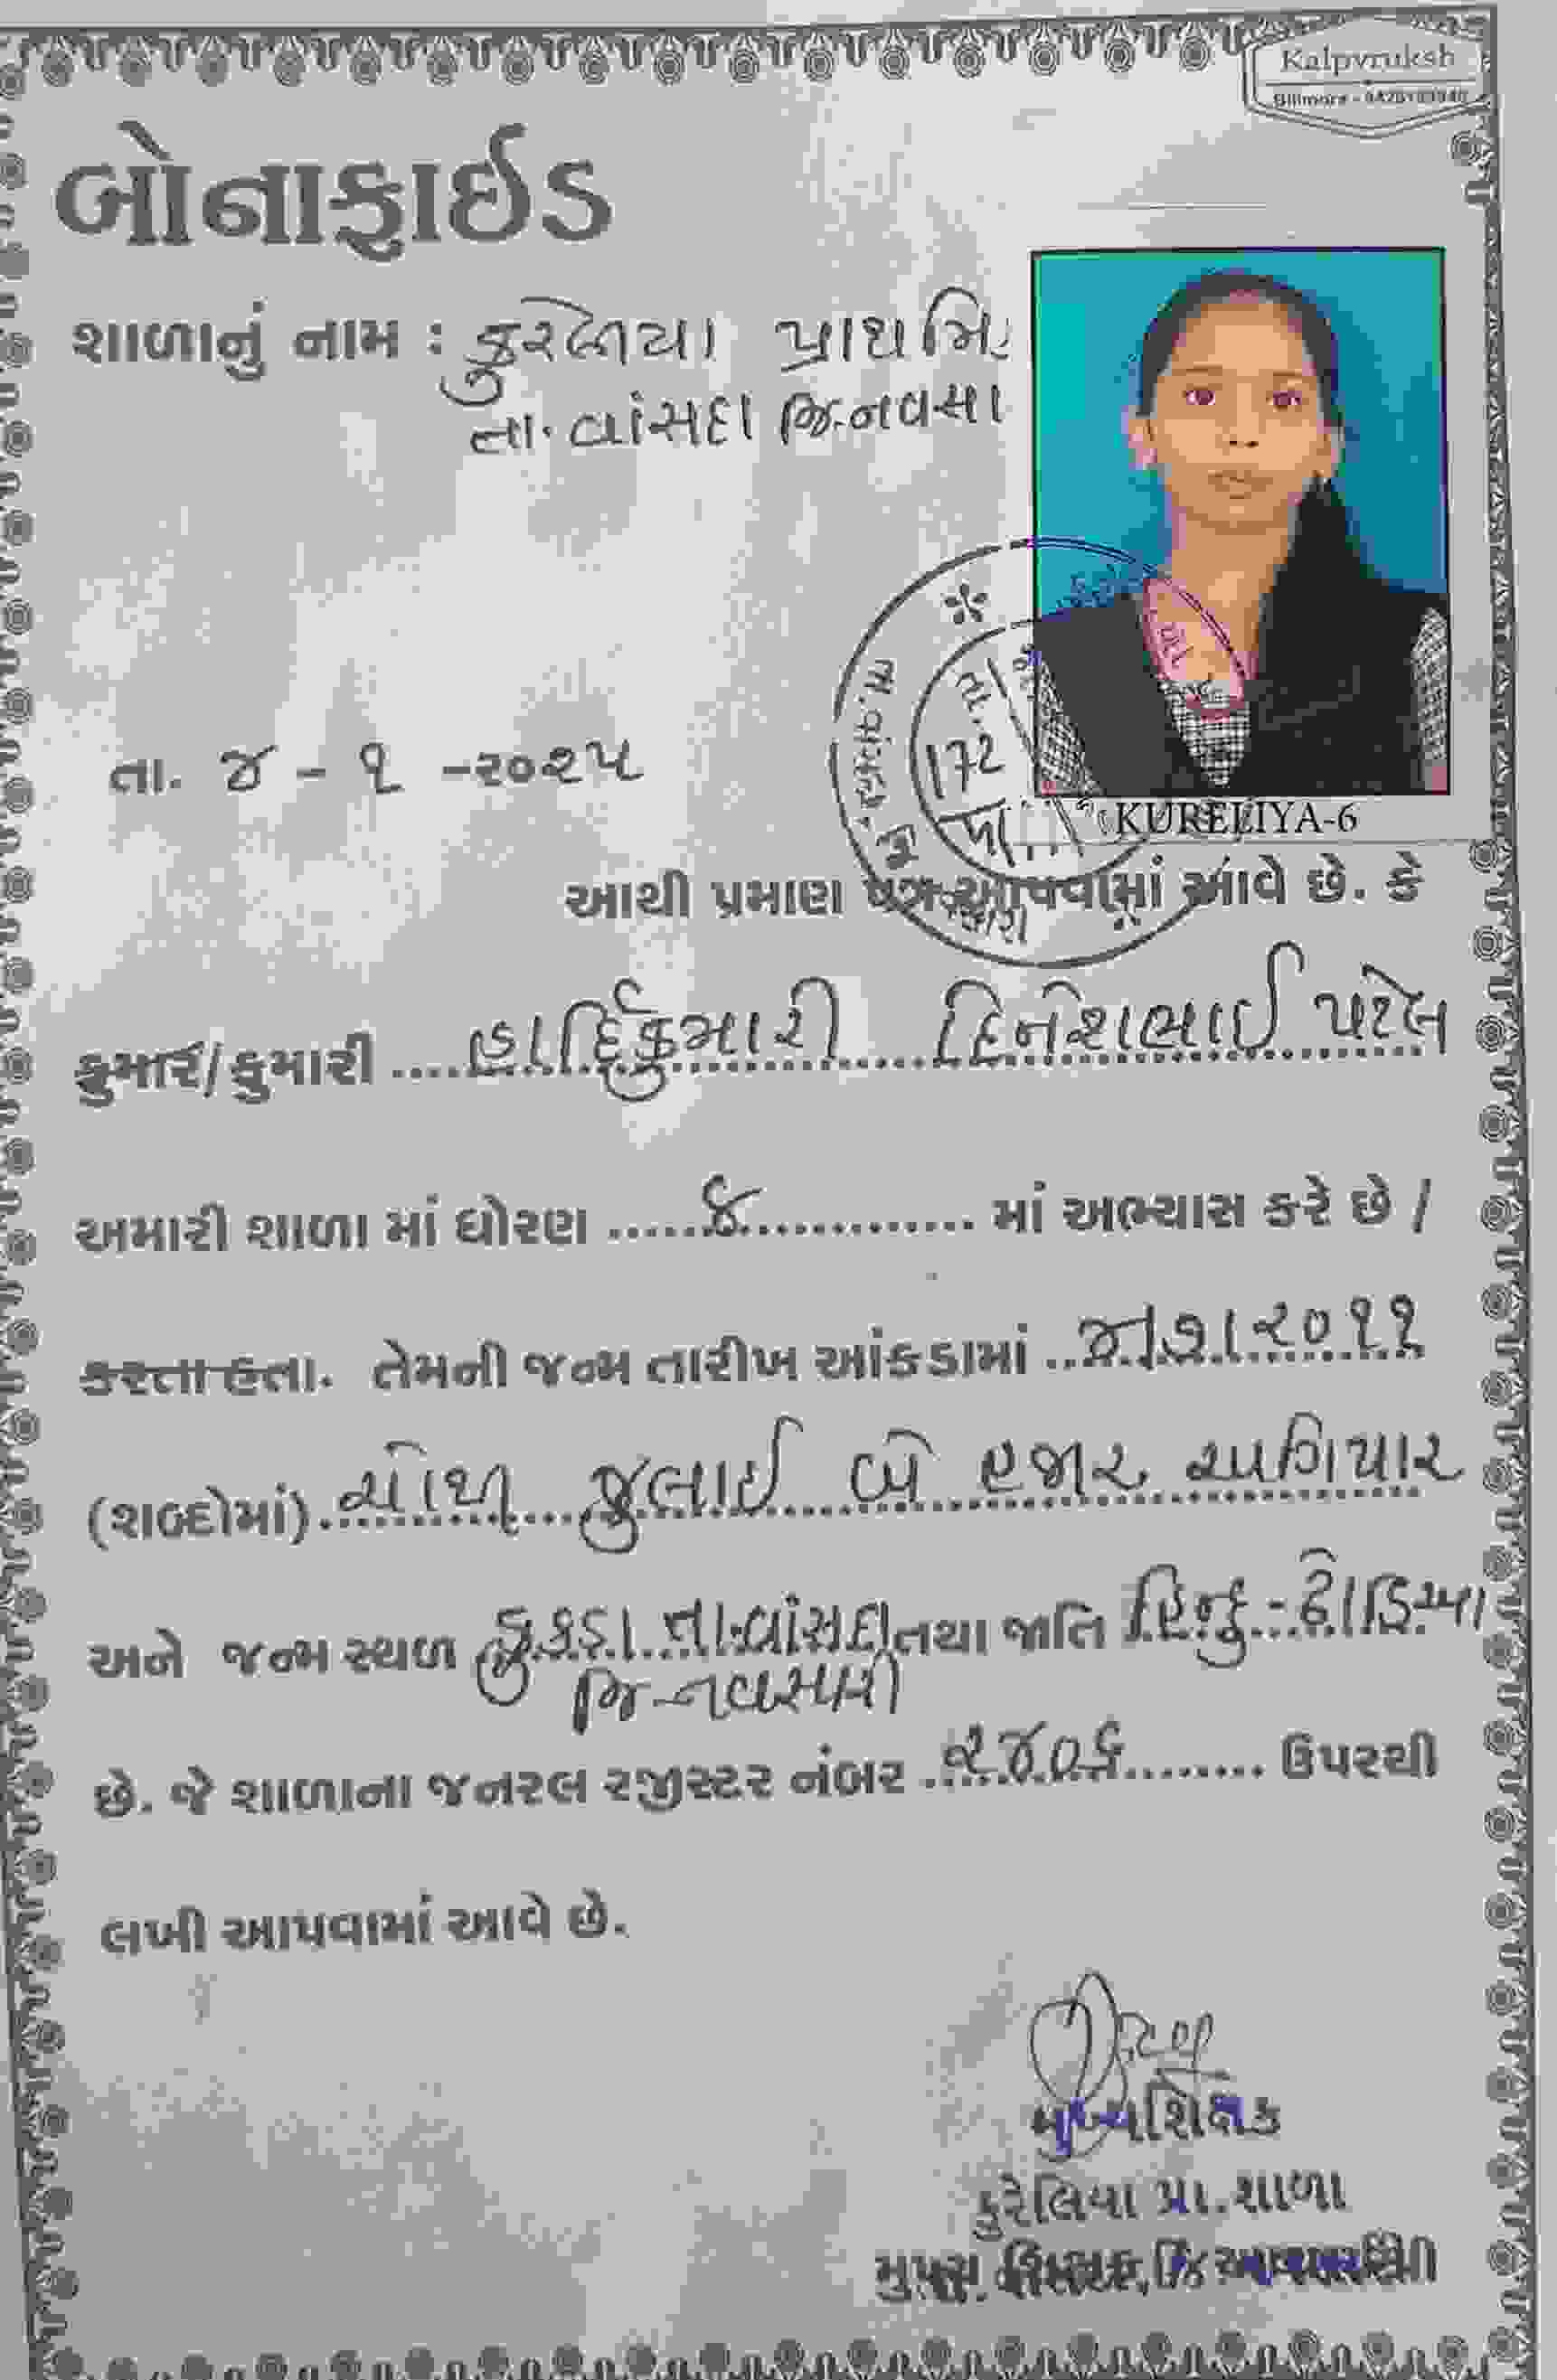 Kalpvruksh
Bilimora -
બોનાફાઈડ
શાળાનું નામ : કુરેલિયા પ્રાથમિ
તા. વાંસદા જિ. નવસા
તા. ૪ - ૧ - ૨૦૨૫
તા.
172
KURELIYA-6
આથી પ્રમાણ પત્ર આપવામાં આવે છે. કે
કુમાર/કુમારી હાર્દિકુમારી દિનેશભાઈ પટેલ
અમારી શાળા માં ધોરણ માં અભ્યાસ કરે છે /
કરતા હતા. તેમની જન્મ તારીખ આંકડામાં ૪।૭।૨૦૧૧
(શબ્દોમાં) ચોથી જુલાઈ બે હજાર અગિયાર
અને જન્મ સ્થળ કુકડા તા. વાંસદા તથા જાતિ હિન્દુ - ઢોડિઆ
જિ. નવસારી
છે. જે શાળાના જનરલ રજીસ્ટર નંબર ૨૪૦૬ ઉપરથી
લખી આપવામાં આવે છે.
મુખ્યશિક્ષક
કુરેલિયા પ્રા. શાળા